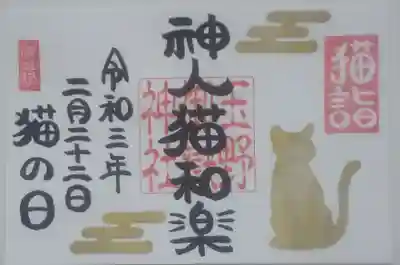 猫詣
神人猫和楽
玉野
神社
令和三年
二月二十二日
猫の日